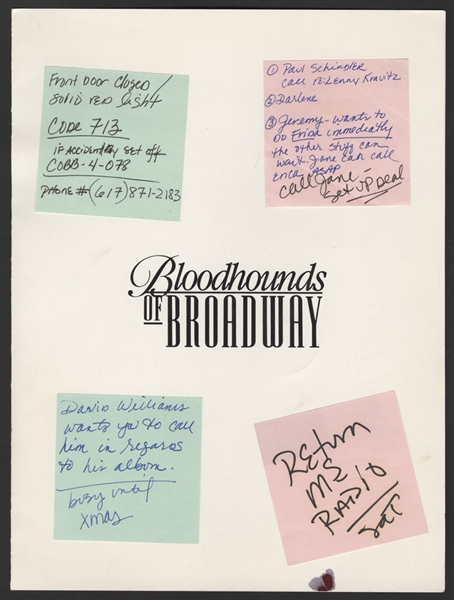 Front Door Closed/
solid red light
Code 713
if accidently set off
COBB-4-078
phone # (617) 871-2183
① Paul Schindler
call re: Lenny Kravitz
② Darlene
③ Jeremy - wants to
do Frida immediately
the other stuff can
wait. Jane can call
erica ASAP
call Jane -
set up Deal
Bloodhounds
OF BROADWAY
David Williams
wants you to call
him in regards
to his album.
busy until
xmas
RETURN
ME
RADIO